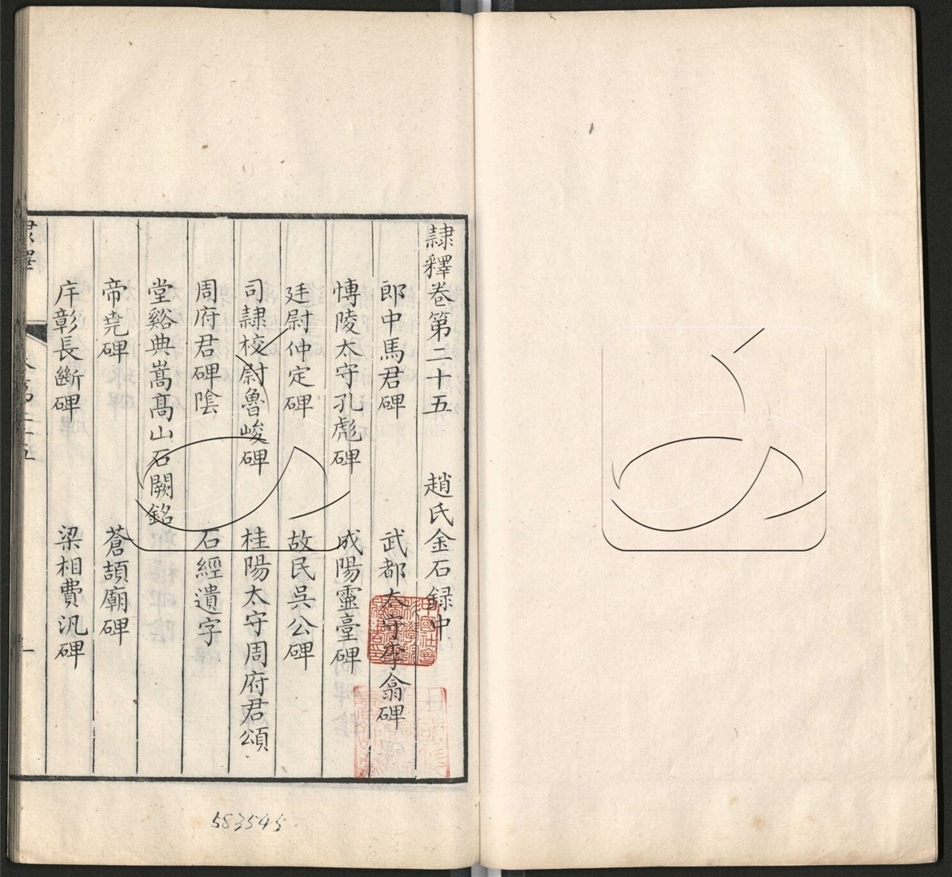 隸釋卷第二十五 趙氏金石録中
郎中馬君碑 武都太守李翕碑
博陵太守孔彪碑 成陽靈臺碑
廷尉仲定碑 故民吳公碑
司隸校尉魯峻碑 桂陽太守周府君頌
周府君碑陰 石經遺字
堂谿典嵩高山石闕銘
帝堯碑 蒼頡廟碑
斥彰長斷碑 梁相費汎碑
隸釋 卷第二十五 一
583545